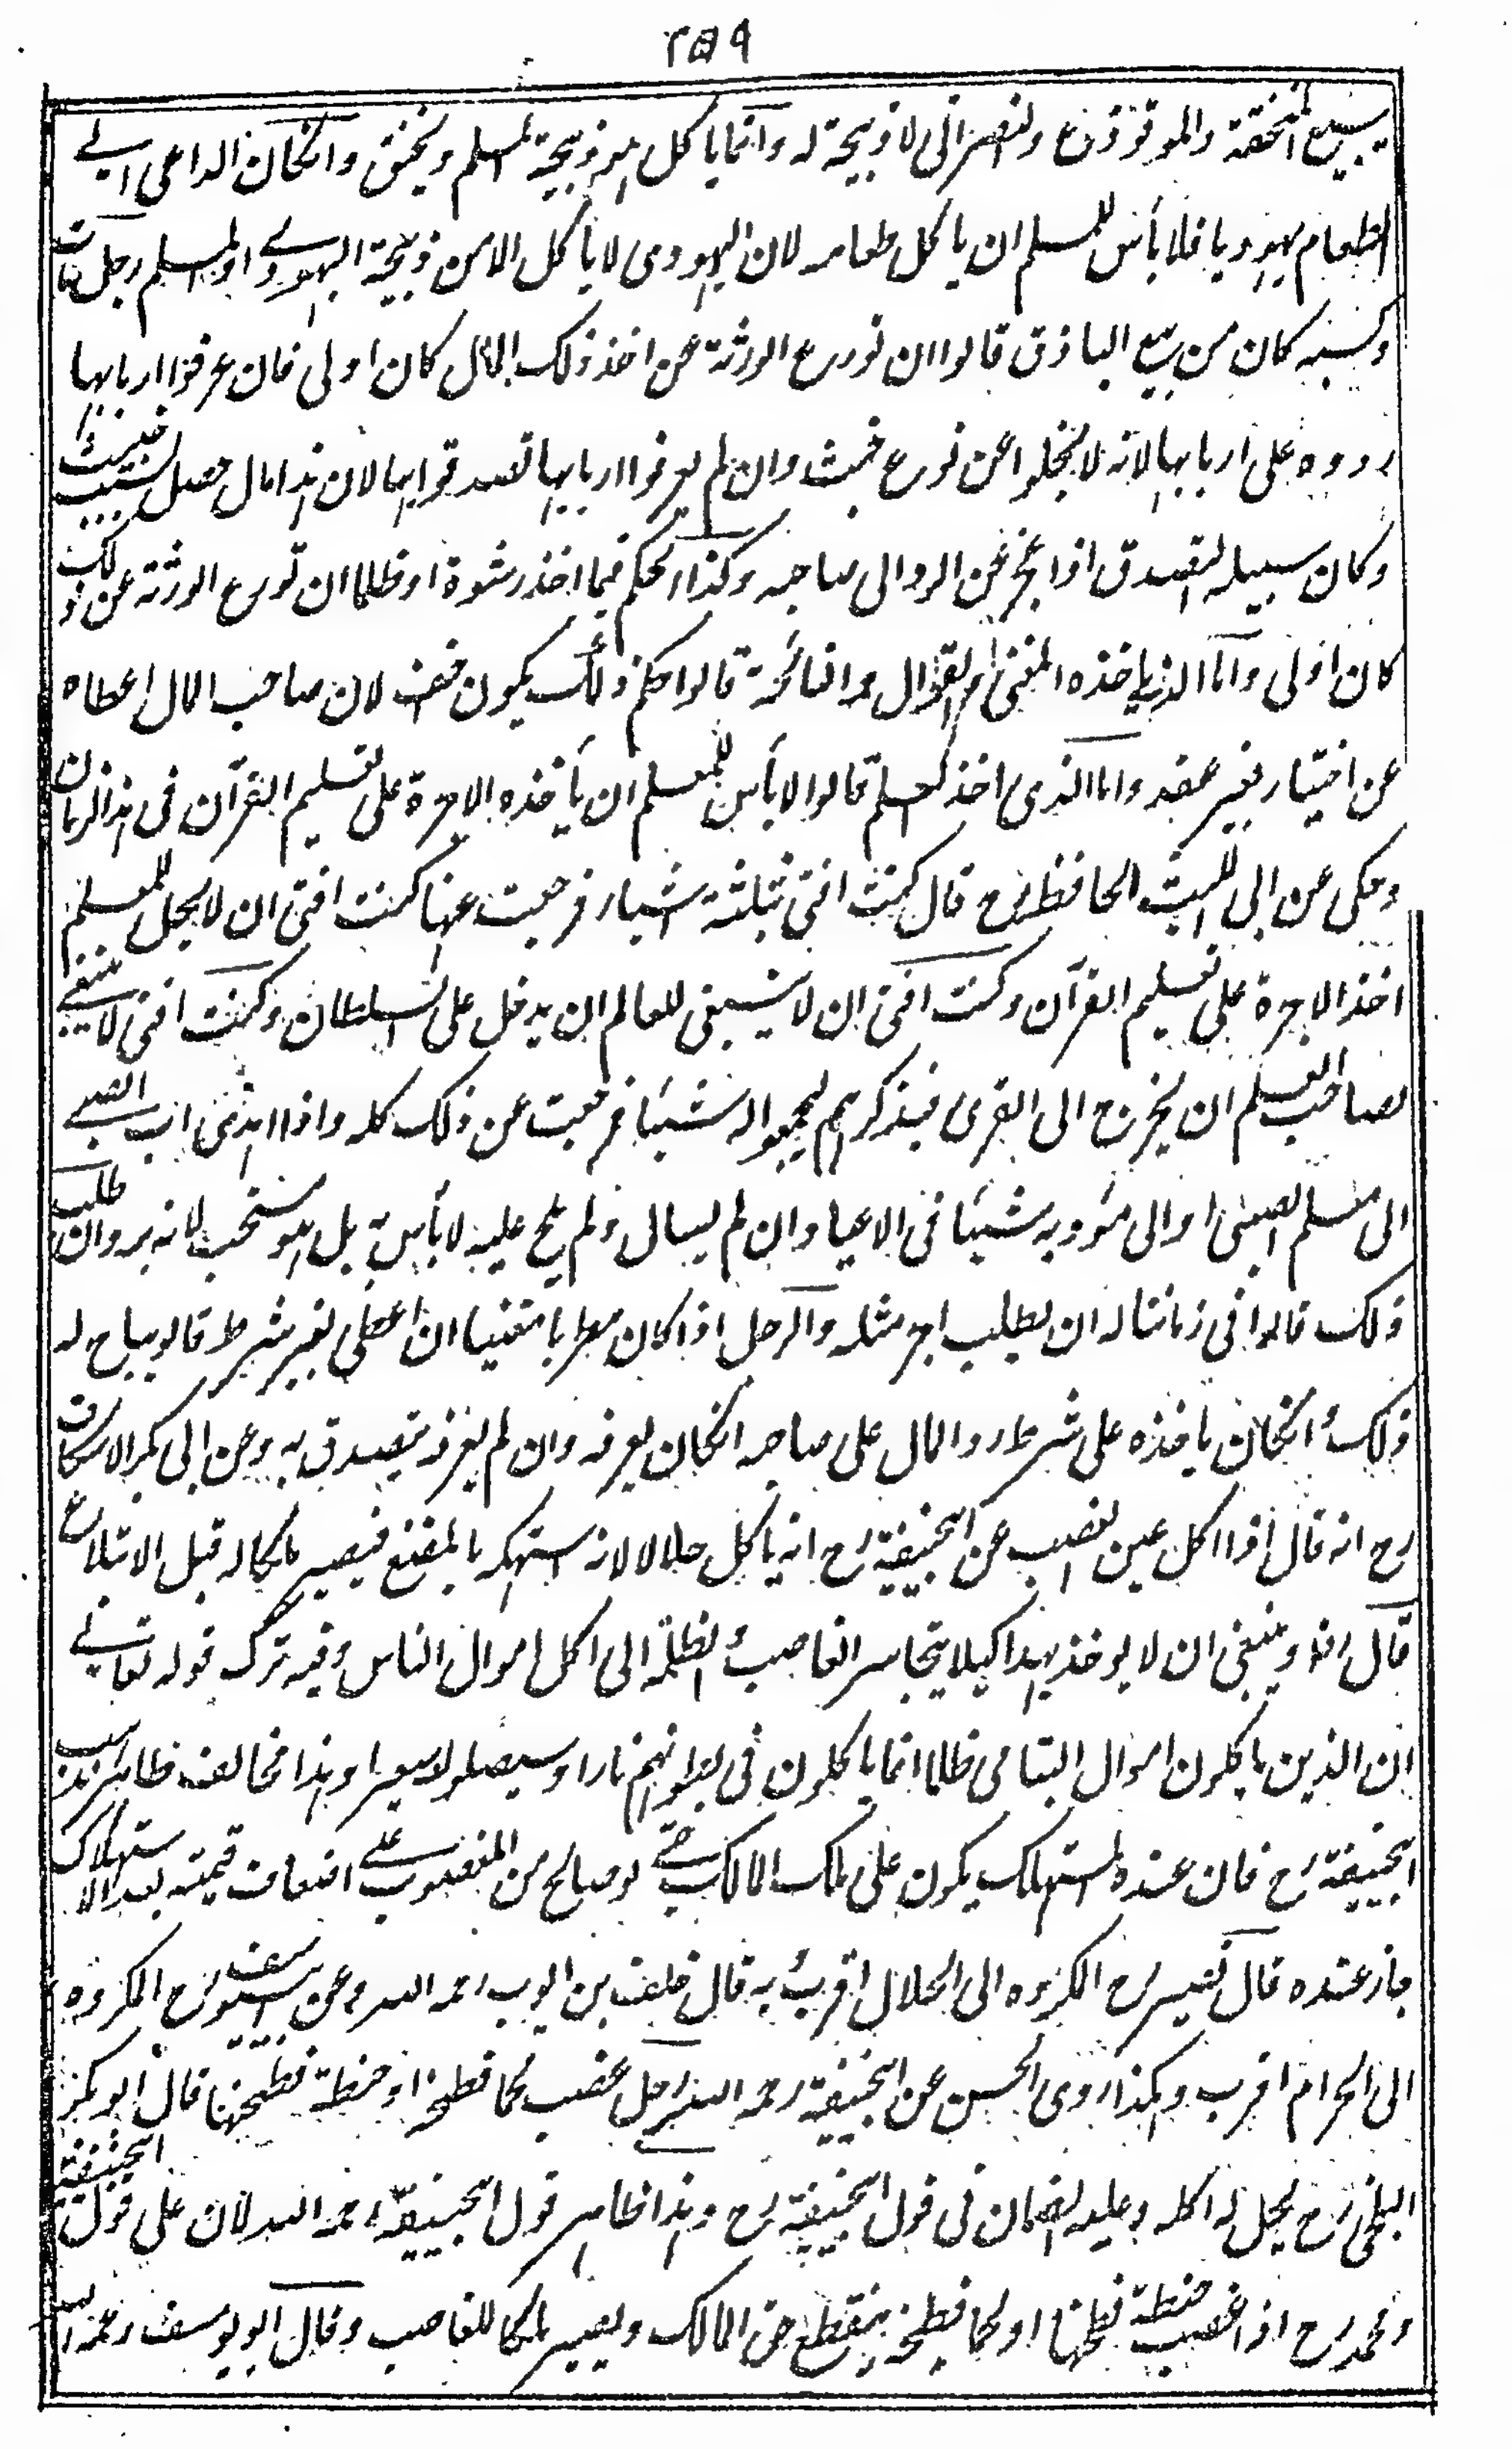 ٣٥٩
يبيع المنخنقة والموقوذة والنصرانى لا ذبيحة له وانما ياكل هو ذبيحة المسلم ويخنق وانكان الداعى الى
الطعام يهوديا فلا بأس للمسلم ان ياكل طعامه لان اليهودى لا يأكل الا من ذبيحة اليهودى او المسلم رجل مات
وكسبه كان من بيع الباذق قالوا ان تورع الورثة عن اخذ ذلك المال كان اولى فان عرفوا اربابها
ردوه على اربابها لانه لا يخلوا عن نوع خبث وان لم يعرفوا اربابها تصدقوا بها لان هذا مال حصل بسبب خبيث
وكان سبيله التصدق اذا عجز عن الرد الى صاحبه وكذا الحكم فيما اخذ رشوة او ظلما ان تورع الورثة عن ذلك
كان اولى واما الذى ياخذه المغنى والقوال والنائحة قالوا حكم ذلك يكون اخف لان صاحب المال اعطاه
عن اختيار بغير عقد واما الذى اخذ المعلم قالوا لا بأس للمعلم ان يأخذه الاجرة على تعليم القرآن فى هذا الزمان
وحكى عن ابى الليث الحافظ رح قال كنت افتى بثلثة اشياء فرجعت عنها كنت افتى ان لا يحل للمعلم
اخذ الاجرة على تعليم القرآن وكنت افتى ان لا ينبغى للعالم ان يدخل على السلطان وكنت افتى لا ينبغى
لصاحب العلم ان يخرج الى القرى فيذكرهم ليجمعوا له شيئا فرجعت عن ذلك كله واذا اهدى اب الصبى
الى معلم الصبى او الى مؤدبه شيئا فى الاعياد ان لم يسال ولم يلح عليه لا بأس به بل هو مستحب لانه بر وان طلب
ذلك قالوا فى زماننا له ان يطلب اجر مثله والرجل اذا كان مطربا مغنيا ان اعطى بغير شرط قالو يباح له
ذلك وانكان ياخذه على شرط رد المال على صاحبه انكان يعرفه وان لم يعرفه يتصدق به وعن ابى بكر الاسكاف
رح انه قال اذا اكل عين الغصب عن ابيحنيفة رح انه ياكل حلالا لانه استهلكه بالمضغ فيصير ملكا له قبل الابتلاع
قال رض وينبغى ان لا يوخذ بهذا كيلا يتجاسر الغاصب والظلمة الى اكل اموال الناس وفيه ترك قوله تعالى
ان الذين ياكلون اموال اليتامى ظلما انما ياكلون فى بطونهم نارا وسيصلون سعيرا وهذا مخالف ظاهر مذهب
ابيحنيفة رح فان عنده المستهلك يكون على ملك المالك حتى لو صالح من المغصوب على اضعاف قيمته بعد الاستهلاك
جاز عنده قال نصير رح المكروه الى الحلال اقرب وبه قال خلف بن ايوب رحمه الله وعن ابى يوسف رح المكروه
الى الحرام اقرب وهكذا روى الحسن عن ابيحنيفة رحمه الله رجل غصب لحما فطبخه او حنطة فطحنها قال ابو بكر
البلخى رح يحل له اكله وعليه الضمان فى قول ابيحنيفة رح وهذا ظاهر قول ابيحنيفة رحمه الله لان على قول ابيحنيفة
ومحمد رح اذا غصب حنطة فطحنها او لحما فطبخه ينقطع حق المالك ويصير ملكا للغاصب وقال ابو يوسف رحمه الله